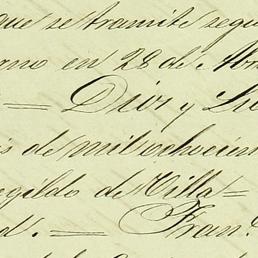 que se tramite segu
erno en 28 de Abr
= Dios y Li
is de mil ochocien
egildo de Villa=
d. = Fran.